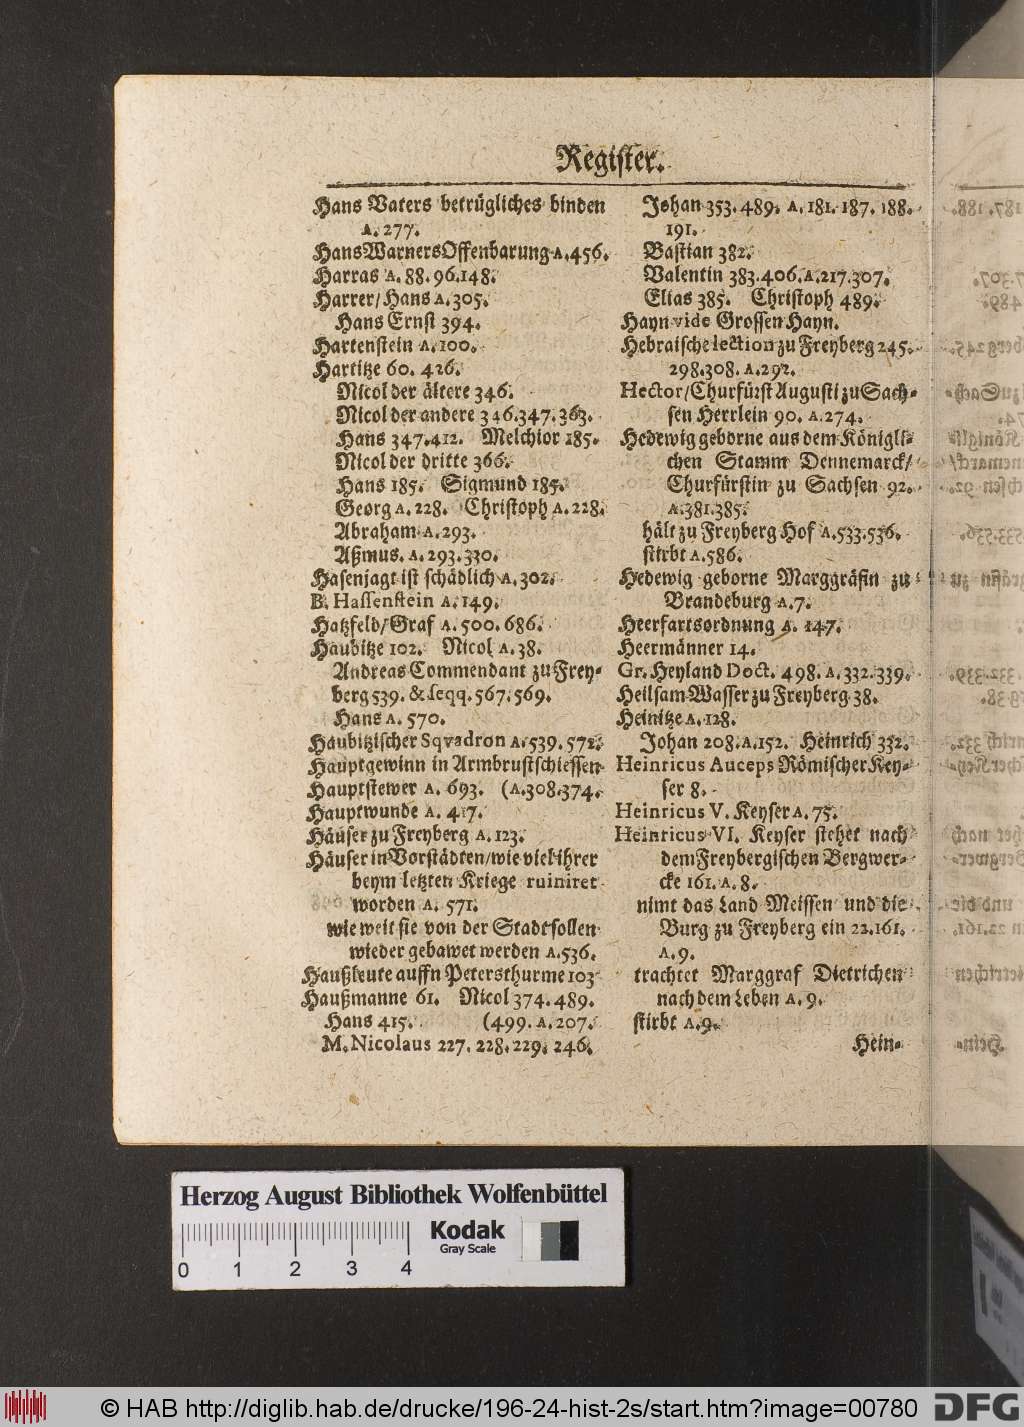 Register.
Hans Vaters betrügliches binden
A. 277.
Hans Warners Offenbarung A. 456.
Harras A. 88. 96. 148.
Harrer/ Hans A. 305.
Hans Ernst 394.
Hartenstein A. 100.
Hartitze 60. 426.
Nicol der ältere 346.
Nicol der andere 346. 347. 363.
Hans 347. 412. Melchior 185.
Nicol der dritte 366.
Hans 185. Sigmund 185.
Georg A. 228. Christoph A. 228.
Abraham A. 293.
Aßmus. A. 293. 330.
Hasenjagt ist schädlich A. 302.
B. Hassenstein A. 149.
Hatzfeld/ Graf A. 500. 686.
Haubitze 102. Nicol A. 38.
Andreas Commendant zu Frey-
berg 539. & seqq. 567. 569.
Hans A. 570.
Haubitzischer Sqvadron A. 539. 572.
Hauptgewinn in Armbrustschiessen
Hauptstewer A. 693. (A. 308. 374.
Hauptwunde A. 417.
Häuser zu Freyberg A. 123.
Häuser in Vorstädten/ wie viel ihrer
beym letzten Kriege ruiniret
worden A. 571.
wie weit sie von der Stadt sollen
wieder gebawet werden A. 536.
Haußleute auffn Petersthurme 103
Haußmanne 61. Nicol 374. 489.
Hans 415. (499. A. 207.
M. Nicolaus 227. 228. 229. 246.
Johan 353. 489. A. 181. 187. 188.
191.
Bastian 382.
Valentin 383. 406. A. 217. 307.
Elias 385. Christoph 489.
Hayn vide Grossen Hayn.
Hebraische lection zu Freyberg 245.
298. 308. A. 292.
Hector/ Churfürst Augusti zu Sach-
sen Herrlein 90. A. 274.
Hedewig geborne aus dem Königli-
chen Stamm Dennemarck/
Churfürstin zu Sachsen 92.
A. 381. 385.
hält zu Freyberg Hof A. 533. 536.
stirbt A. 586.
Hedewig geborne Marggräfin zu
Brandeburg A. 7.
Heerfartsordnung A. 147.
Heermänner 14.
Gr. Heyland Doct. 498. A. 332. 339.
Heilsam Wasser zu Freyberg 38.
Heinitze A. 128.
Johan 208. A. 152. Heinrich 332.
Heinricus Auceps Römischer Key-
ser 8.
Heinricus V. Keyser A. 75.
Heinricus VI. Keyser stehet nach
dem Freybergischen Bergwer-
cke 161. A. 8.
nimt das Land Meissen und die
Burg zu Freyberg ein 22. 161.
A. 9.
trachtet Marggraf Dietrichen
nach dem Leben A. 9.
stirbt A. 9.
Hein-
Herzog August Bibliothek Wolfenbüttel
Kodak
Gray Scale
0 1 2 3 4
© HAB http://diglib.hab.de/drucke/196-24-hist-2s/start.htm?image=00780
DFG